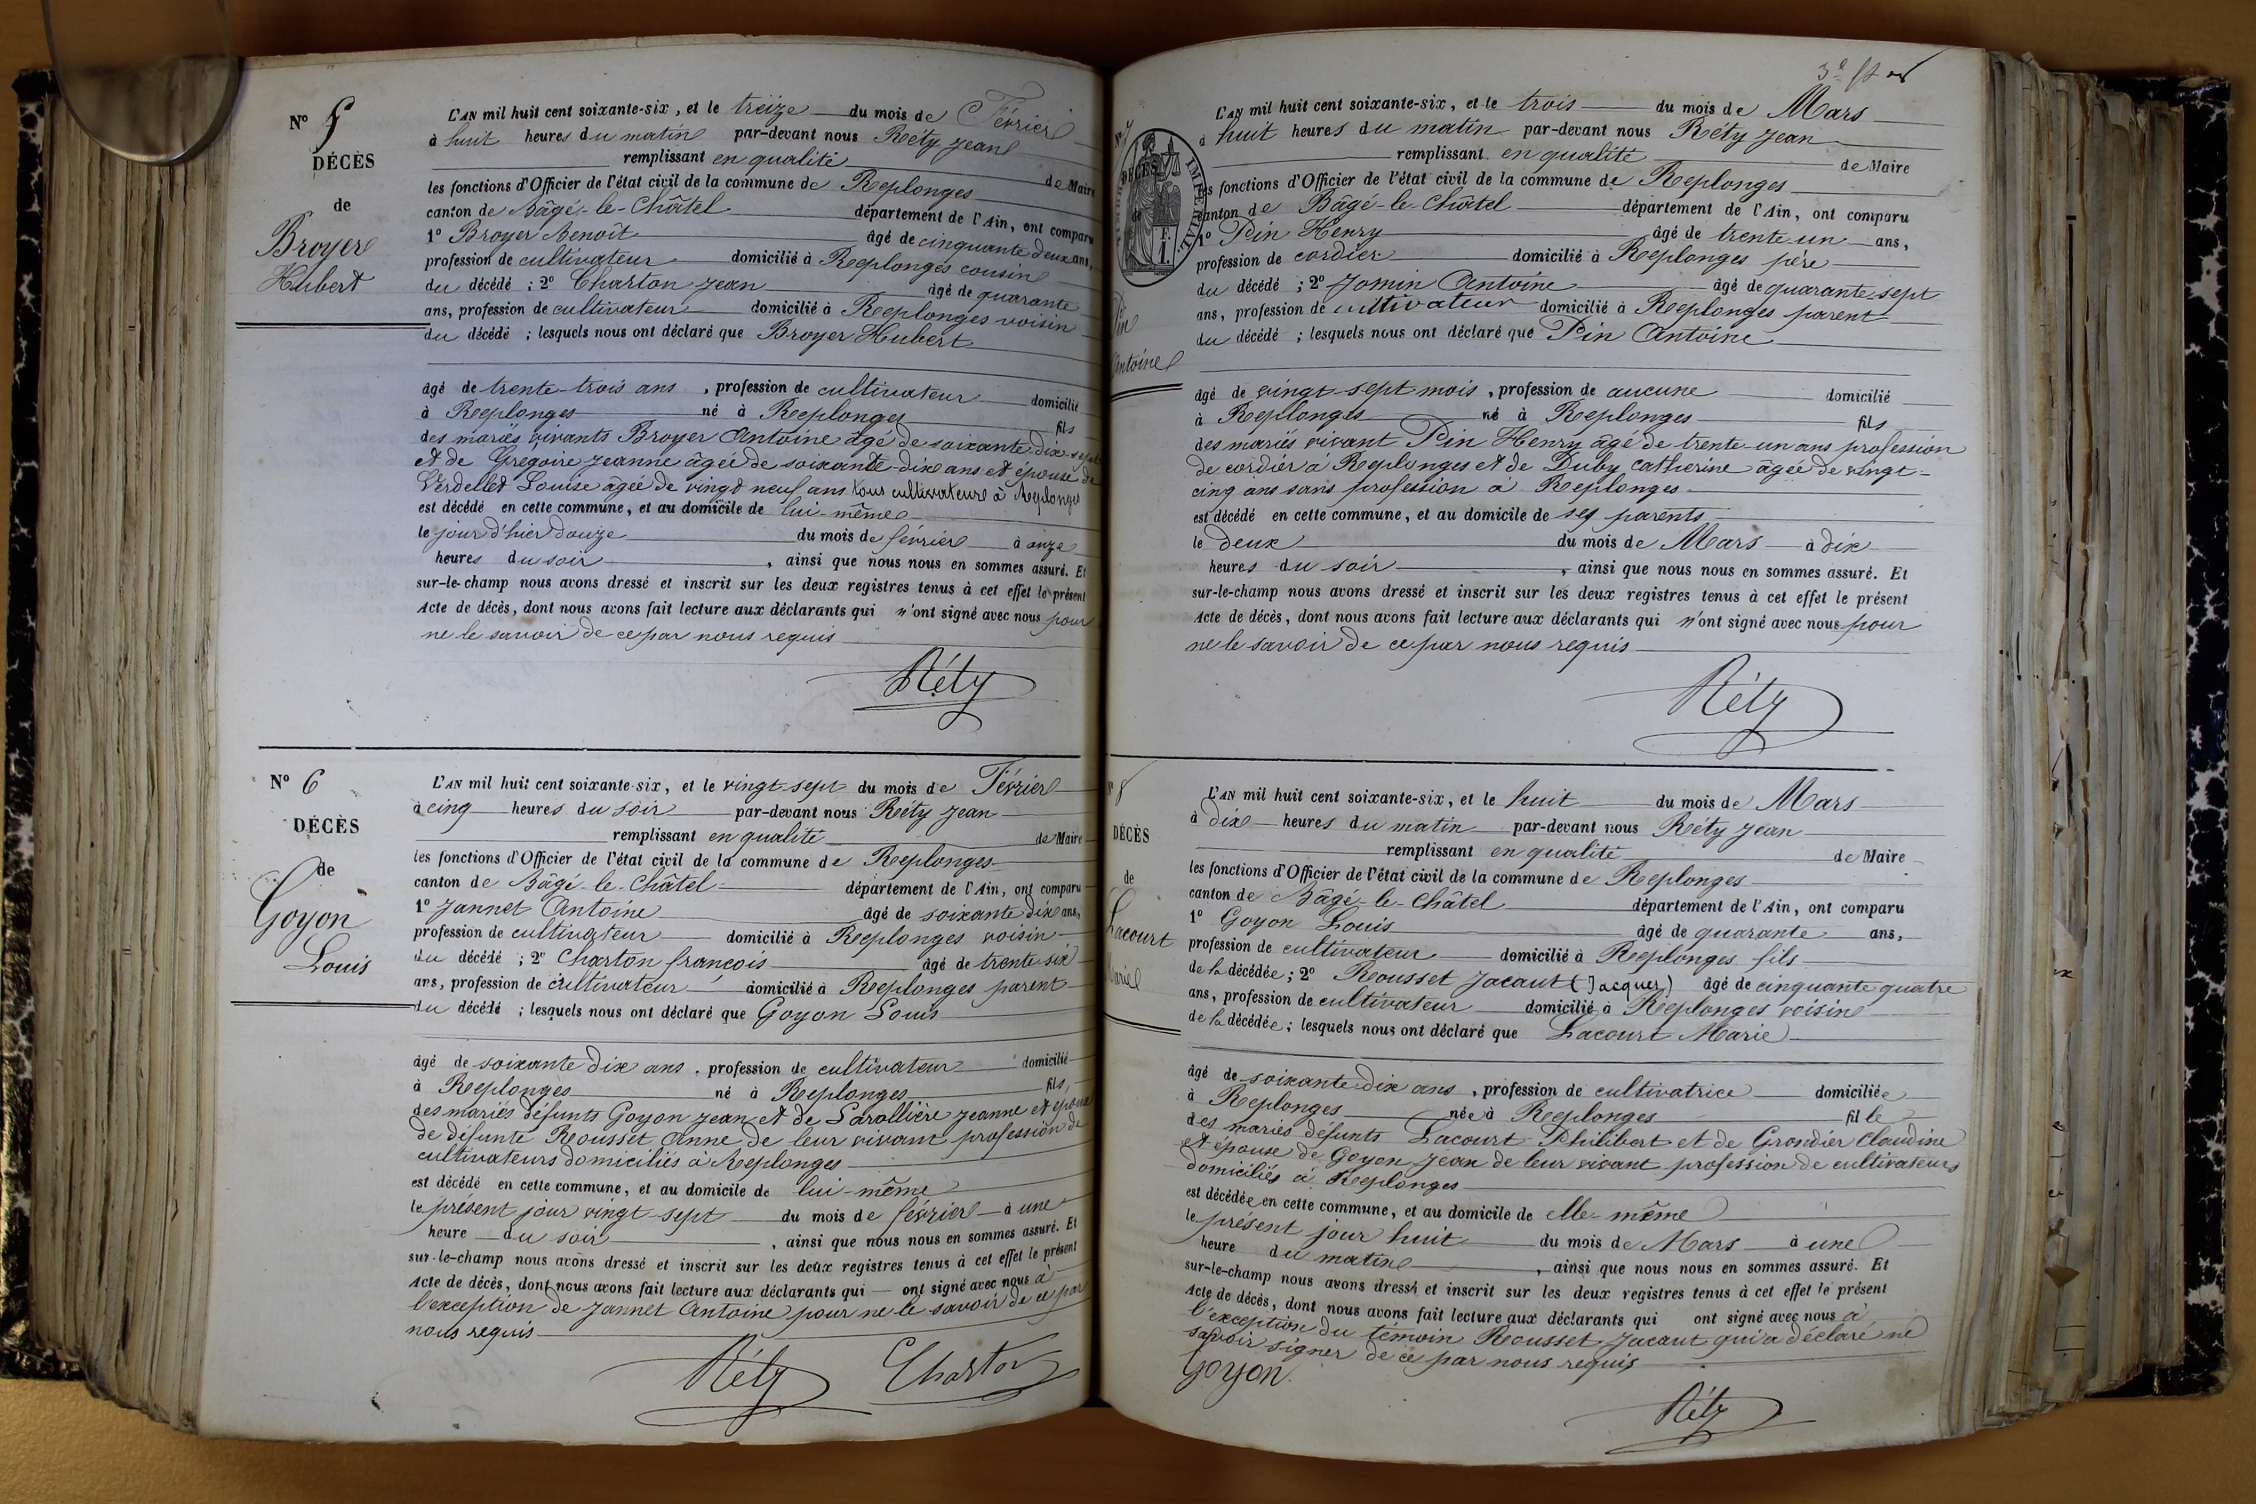 N° 5
DÉCÈS
de
Broyer
Hubert
L'AN mil huit cent soixante-six, et le treize du mois de Février
à huit heures du matin par-devant nous Réty Jean
remplissant en qualité de Maire
les fonctions d'Officier de l'état civil de la commune de Replonges
canton de Bâgé-le-Châtel département de l'Ain, ont comparu
1° Broyer Benoit âgé de cinquante deux ans,
profession de cultivateur domicilié à Replonges cousin
du décédé ; 2° Charton Jean âgé de quarante
ans, profession de cultivateur domicilié à Replonges voisin
du décédé ; lesquels nous ont déclaré que Broyer Hubert
âgé de trente-trois ans, profession de cultivateur domicilié
à Replonges né à Replonges fils
des mariés vivants Broyer Antoine âgé de soixante dix-sept
et de Grégoire Jeanne âgée de soixante-dix ans et époux de
Verdellet Louise âgée de vingt neuf ans tous cultivateurs à Replonges
est décédé en cette commune, et au domicile de lui-même
le jour d'hier douze du mois de février à onze
heures du soir, ainsi que nous nous en sommes assuré. Et
sur-le-champ nous avons dressé et inscrit sur les deux registres tenus à cet effet le présent
Acte de décès, dont nous avons fait lecture aux déclarants qui n'ont signé avec nous pour
ne le savoir de ce par nous requis
Réty
N° 6
DÉCÈS
de
Goyon
Louis
L'AN mil huit cent soixante-six, et le vingt-sept du mois de Février
à cinq heures du soir par-devant nous Réty Jean
remplissant en qualité de Maire
les fonctions d'Officier de l'état civil de la commune de Replonges
canton de Bâgé-le-Châtel département de l'Ain, ont comparu
1° Jannet Antoine âgé de soixante dix ans,
profession de cultivateur domicilié à Replonges voisin
du décédé ; 2° Charton françois âgé de trente six
ans, profession de cultivateur domicilié à Replonges parent
du décédé ; lesquels nous ont déclaré que Goyon Louis
âgé de soixante dix ans, profession de cultivateur domicilié
à Replonges né à Replonges fils
des mariés défunts Goyon Jean et de Larollière Jeanne et époux
de défunte Rousset Anne de leur vivant profession de
cultivateurs domiciliés à Replonges
est décédé en cette commune, et au domicile de lui-même
le présent jour vingt-sept du mois de février à une
heure du soir, ainsi que nous nous en sommes assuré. Et
sur-le-champ nous avons dressé et inscrit sur les deux registres tenus à cet effet le présent
Acte de décès, dont nous avons fait lecture aux déclarants qui ont signé avec nous à
l'exception de Jannet Antoine pour ne le savoir de ce par
nous requis
Réty Charton
N° 7
DÉCÈS
de
Pin
Antoine
L'AN mil huit cent soixante-six, et le trois du mois de Mars
à huit heures du matin par-devant nous Réty Jean
remplissant en qualité de Maire
les fonctions d'Officier de l'état civil de la commune de Replonges
canton de Bâgé-le-Châtel département de l'Ain, ont comparu
1° Pin Henry âgé de trente un ans,
profession de cordier domicilié à Replonges père
du décédé ; 2° Jomin Antoine âgé de quarante sept
ans, profession de cultivateur domicilié à Replonges parent
du décédé ; lesquels nous ont déclaré que Pin Antoine
âgé de vingt-sept mois, profession de aucune domicilié
à Replonges né à Replonges fils
des mariés vivant Pin Henry âgé de trente-un ans profession
de cordier à Replonges et de Duby Catherine âgée de vingt-
cinq ans sans profession à Replonges
est décédé en cette commune, et au domicile de ses parents
le deux du mois de Mars à dix
heures du soir, ainsi que nous nous en sommes assuré. Et
sur-le-champ nous avons dressé et inscrit sur les deux registres tenus à cet effet le présent
Acte de décès, dont nous avons fait lecture aux déclarants qui n'ont signé avec nous pour
ne le savoir de ce par nous requis
Réty
N° 8
DÉCÈS
de
Lacourt
Marie
L'AN mil huit cent soixante-six, et le huit du mois de Mars
à dix heures du matin par-devant nous Réty Jean
remplissant en qualité de Maire
les fonctions d'Officier de l'état civil de la commune de Replonges
canton de Bâgé-le-Châtel département de l'Ain, ont comparu
1° Goyon Louis âgé de quarante ans,
profession de cultivateur domicilié à Replonges fils
de la décédée ; 2° Rousset Jacaut (Jacques) âgé de cinquante quatre
ans, profession de cultivateur domicilié à Replonges voisin
de la décédée ; lesquels nous ont déclaré que Lacourt Marie
âgé de soixante dix ans, profession de cultivatrice domiciliée
à Replonges née à Replonges fille
des mariés défunts Lacourt Philibert et de Grondier Claudine
et épouse de Goyon Jean de leur vivant profession de cultivateurs
domiciliés à Replonges
est décédée en cette commune, et au domicile de elle-même
le présent jour huit du mois de Mars à une
heure du matin, ainsi que nous nous en sommes assuré. Et
sur-le-champ nous avons dressé et inscrit sur les deux registres tenus à cet effet le présent
Acte de décès, dont nous avons fait lecture aux déclarants qui ont signé avec nous à
l'exception du témoin Rousset Jacaut qui a déclaré ne
savoir signer de ce par nous requis
Goyon
Réty